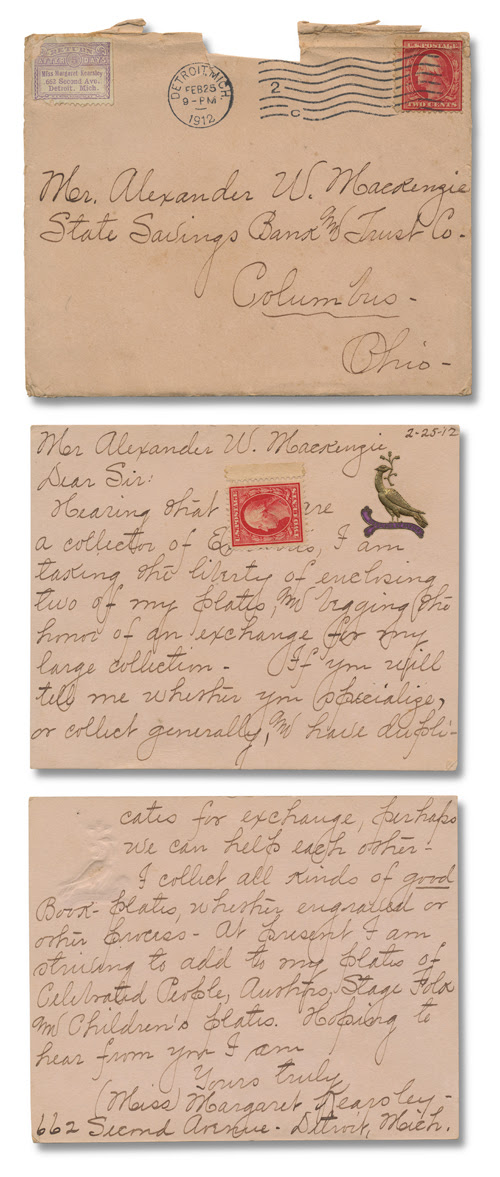 RETURN
AFTER DAYS
Miss Margaret Kearsley
662 Second Ave.
Detroit, Mich.
DETROIT, MICH.
FEB 25
9-PM
1912
2
C
U.S. POSTAGE
TWO CENTS
Mr. Alexander W. Mackenzie
State Savings Bank & Trust Co-
Columbus-
Ohio-
2-25-12
Mr Alexander W. Mackenzie
Dear Sir:
Hearing that
U.S. POSTAGE
a collector of I am
taking the liberty of enclosing
two of my plates, & begging the
honor of an exchange for my
large collection- If you will
tell me whether you specialize,
or collect generally, & have dupli-
cates for exchange, perhaps
we can help each other-
I collect all kinds of good
Book-plates, whether engraved or
other process- At present I am
striving to add to my plates of
Celebrated People, Authors, Stage Folk
& Children's plates. Hoping to
hear from you I am
Yours truly
(Miss) Margaret Kearsley-
662 Second Avenue- Detroit, Mich.